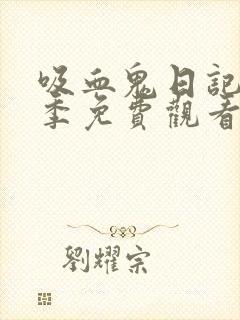 吸血鬼日記
季免費觀看
劉耀宗